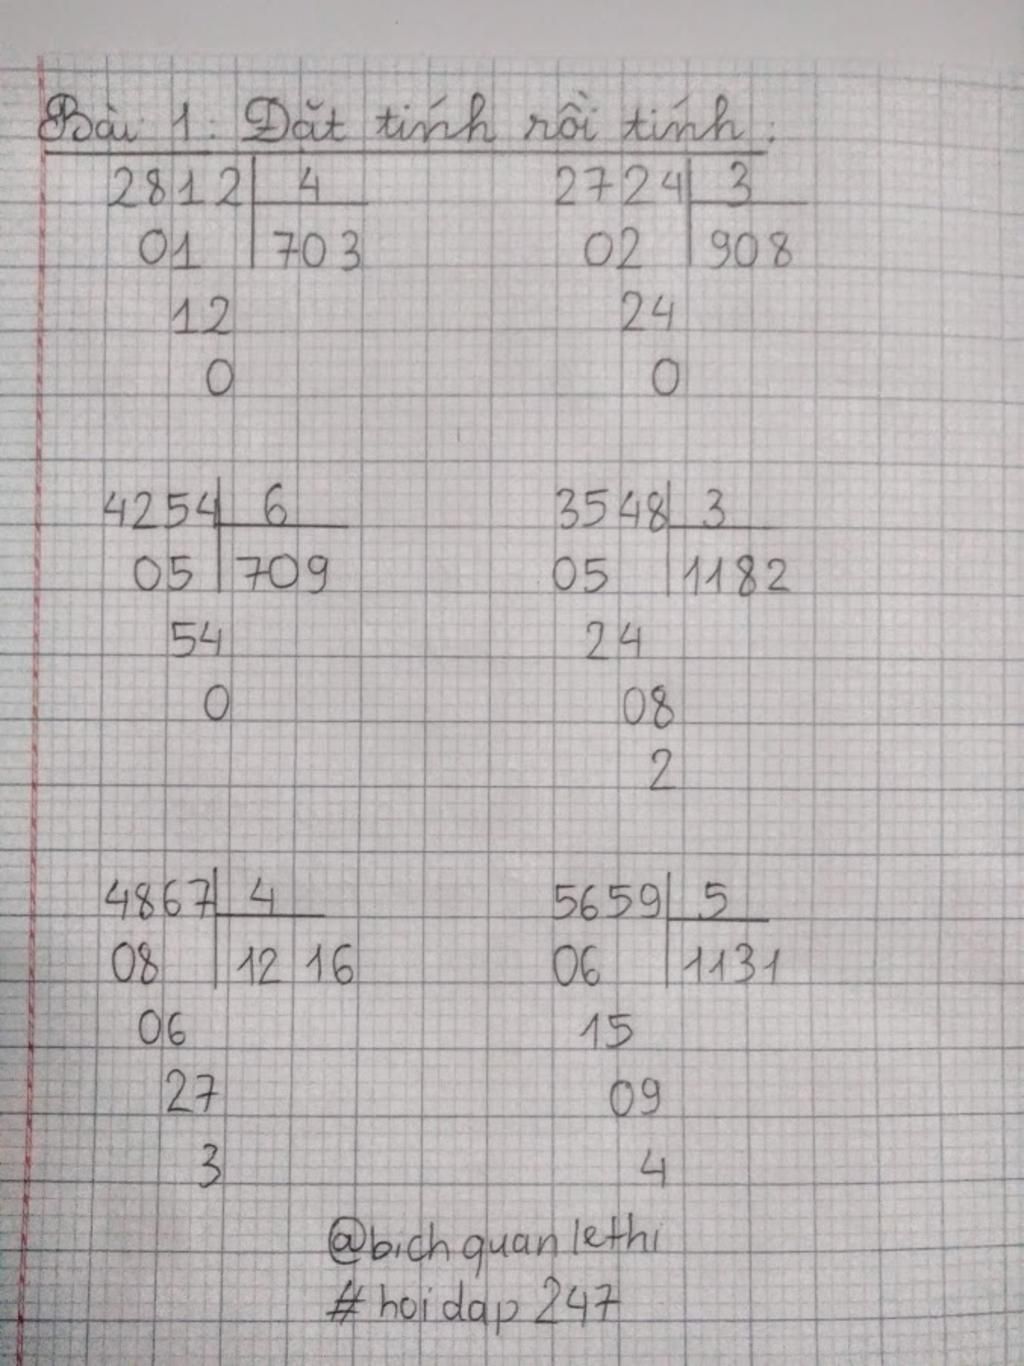 Bài 1: Đặt tính rồi tính:
2812 4 2724 3
01 703 02 908
12 24
0 0
4254 6 3548 3
05 709 05 1182
54 24
0 08
2
4867 4 5659 5
08 1216 06 1131
06 15
27 09
3 4
@bichquanlethi
#hoidap247